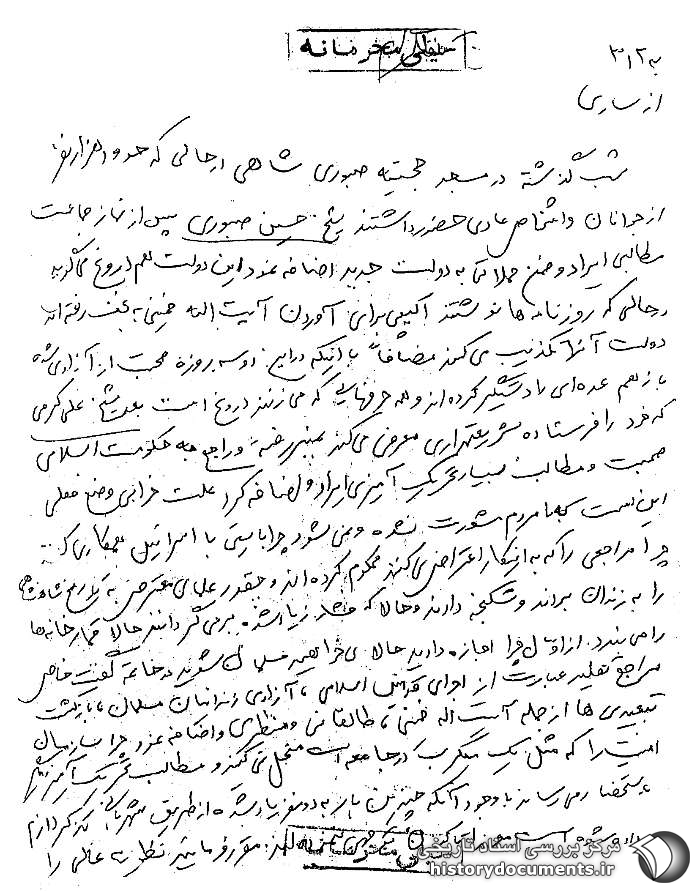 خیلی محرمانه
به ۳۱۲
از ساری
شب گذشته در مسجد حجتیه صبوری شاهی در حالی که حدود هزار نفر
از جوانان و اشخاص عادی حضور داشتند شیخ حسین صبوری پس از نماز جماعت
مطالبی ایراد و ضمن حملاتی به دولت جدید اضافه نمود این دولت هم دروغ می گوید
در حالی که روزنامه ها نوشتند اکیپی برای آوردن آیت اله خمینی به نجف رفته اند
دولت آنرا تکذیب می کند مضافاً با اینکه در این دو سه روزه صحبت از آزادی شده
باز هم عده ای را دستگیر کرده اند و همه حرفهایی که می زنند دروغ است بعد شیخ علی کرمی
که خود را فرستاده معرفی می کند بمنبر رفته و راجع به حکومت اسلامی
صحبت و مطالب بسیار تحریک آمیزی ایراد و اضافه کرد علت خرابی وضع فعلی
این است که با مردم مشورت نشده و نمی شود چرا بایستی با اسرائیل همکاری کرد
چرا مراجعی را که به اینکار اعتراض می کنند محکوم کرده اند و چقدر علمای معترض به تاریخ شاهنشاهی
را به زندان بردند و شکنجه دادند و حالا که فشار زیاد شده بر می گردانند حالا قمارخانه ها
را می بندد از اول چرا اجازه دادید حالا می خواهید مسلمان شوید در خاتمه گفت خواص
مراجع تقلید عبارت از اجرای قوانین اسلامی، آزادی زندانیان مسلمان، بازگشت
تبعیدی ها از جمله آیت اله خمینی، طالقانی و منتظری و اضافه نمود چرا سازمان
امنیت را که مثل یک میکرب در جامعه است منحل نمی کنند و مطالب تحریک آمیز دیگر
باستحضار می رساند با وجود آنکه چندین بار به دو نفر یاد شده از طریق شهربانی تذکر لازم
داده شده است مقرر فرمایند نظریه عالی را
خیلی محرمانه
مرکز بررسی اسناد تاریخی
historydocuments.ir